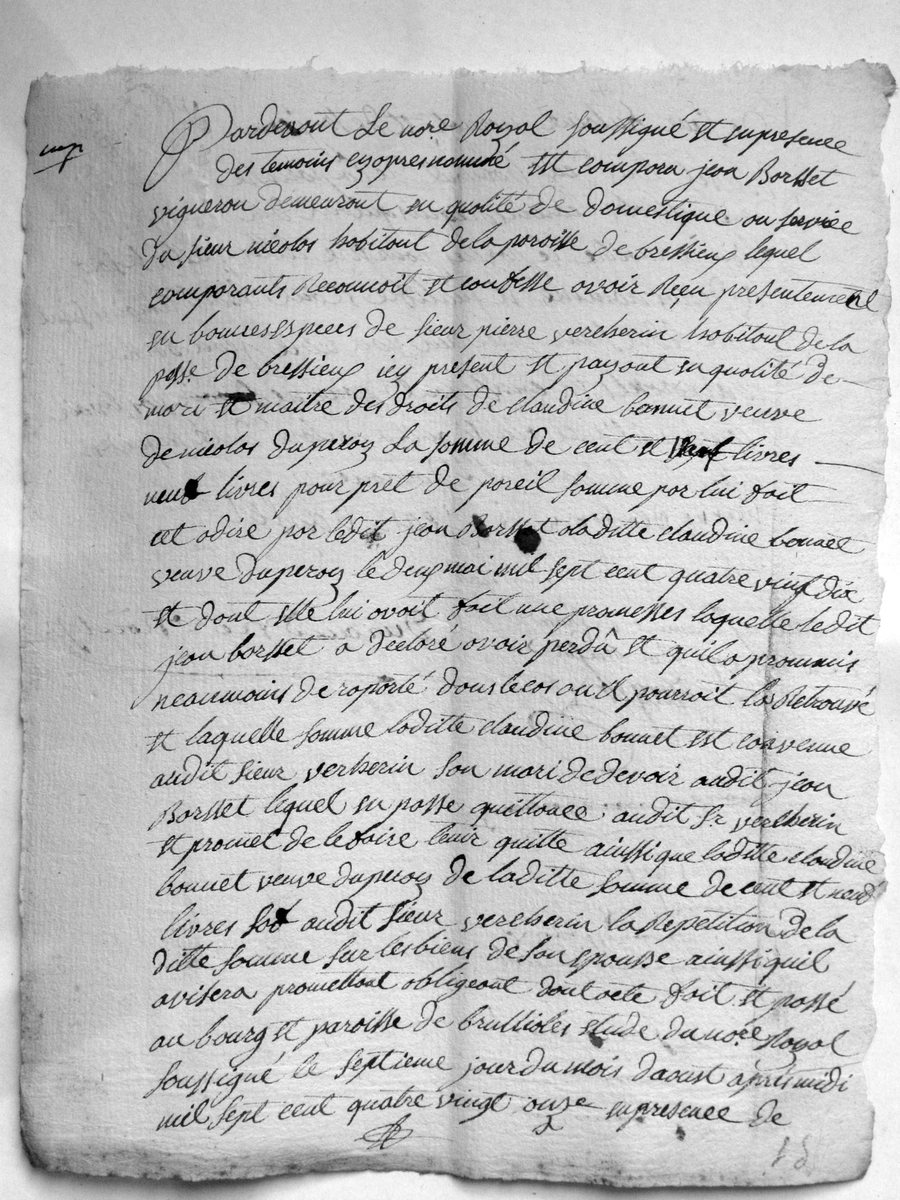 Pardevant Le nore Royal soussigné et en presence
des temoins cy apres nommé est compara jean Borsset
vigneron demeurant en qualité de domestique au service
du sieur nicolas habitant de la paroisse de bressieux lequel
comparants Reconnoit et confesse avoir Reçu presentement
en bonnes especes de sieur pierre vercherin habitant de la
posse. de bressieux icy present et payant en qualité de
mari et maitre des droits de claudine bonnet veuve
de nicolas duperoy La somme de cent et livres
neuf livres pour pret de pareil somme par lui fait
cet adire par ledit jean Borsset a laditte claudine bonnet
veuve duperoy le deux mai mil sept cent quatre vint dix
et dont elle lui avoit fait une promesses laquelle ledit
jean borsset a declaré avoir perdû et quil a prommis
neaumoins de raporté dans le cas ou il pourroit la Retrouvé
et laquelle somme laditte claudine bonnet est convenue
audit sieur verherin son mari de devoir audit jean
Borsset lequel en passe quittance audit sr vercherin
et promet de le faire tenir quitte ainssi que laditte claudine
bonnet veuve duperoy de laditte somme de cent et neuf
livres sof audit sieur vercherin la Repetition de la
ditte somme sur les biens de son epousse ainssi quil
avisera promettant obligeant dont acte fait et passé
au bourg et paroisse de brussioles etude du nore Royal
soussigné le septieme jour du mois daoust aprés midi
mil sept cent quatre vingt onze en presence de